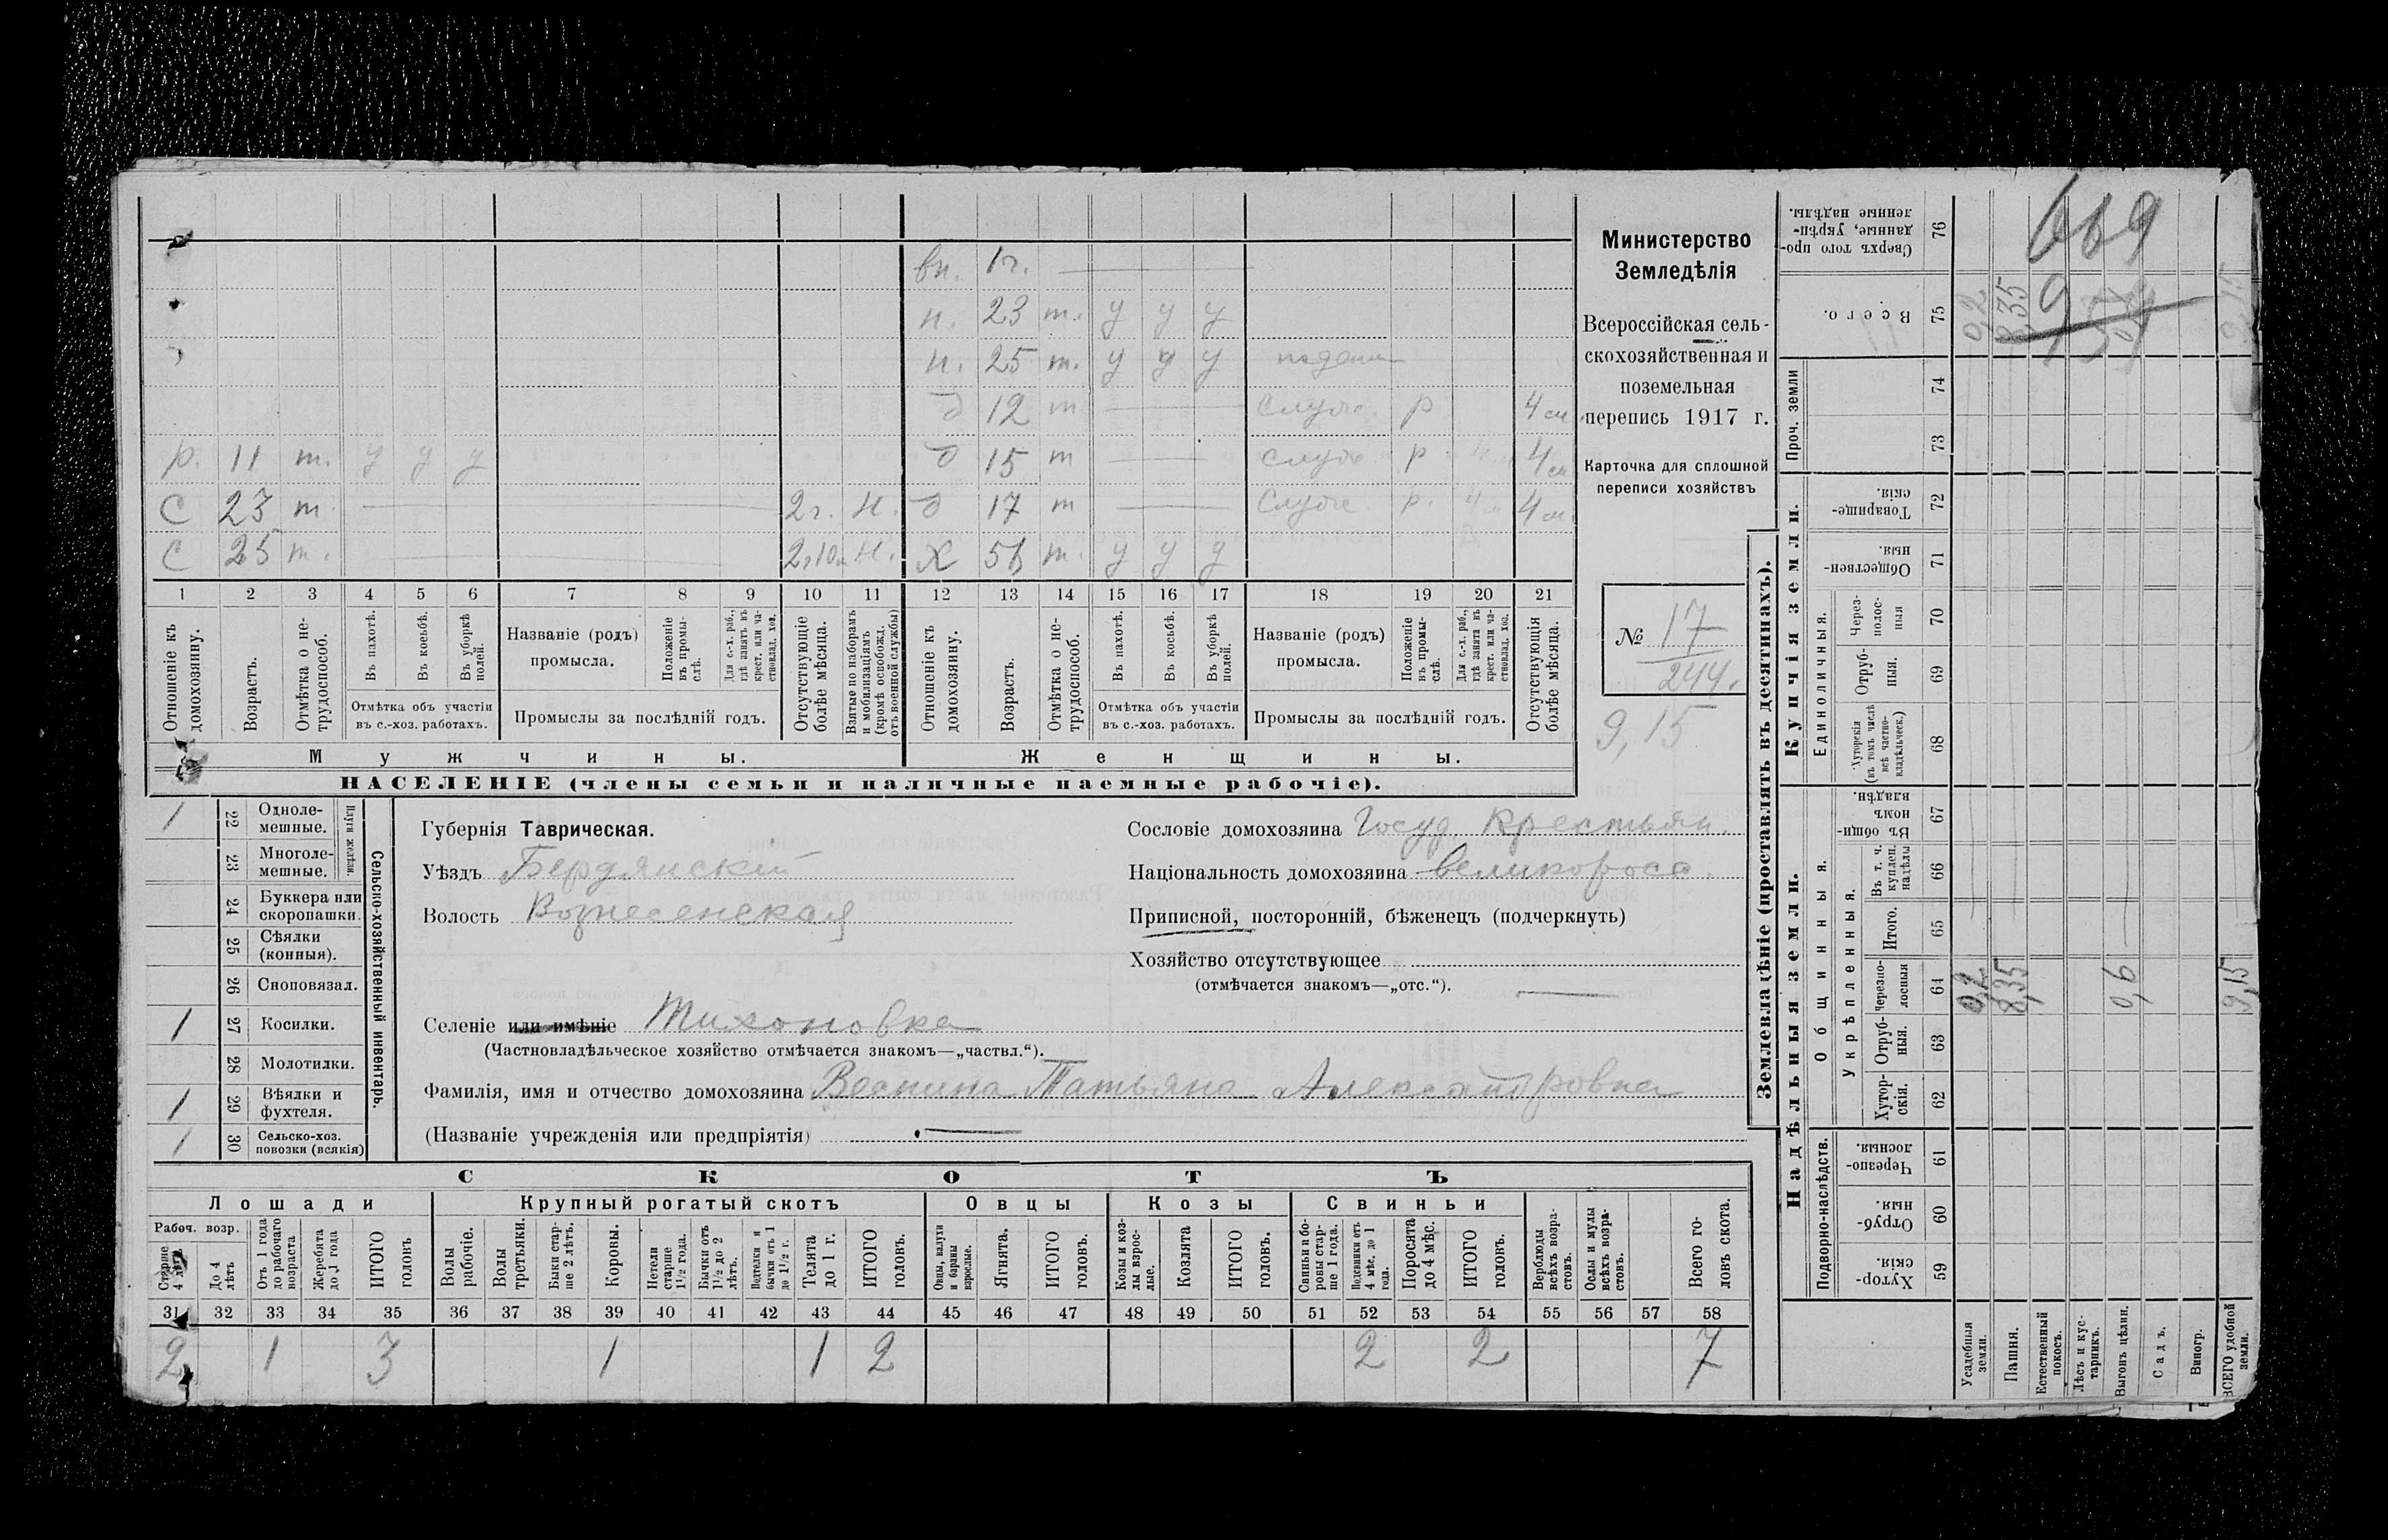 вн. 1 г.
н. 23 т. у у у
н. 25 т. у у у поден
д 12 т служ. р 4 м
р. 11 т. у у у д 15 т служ. р 4 м
С 23 т. 2 г. Н. д 17 т служ. р. 4 м 4 м.
С 25 т. 2 г 10 м Н. Х т. у у у
1 2 3 4 5 6 7 8 9 10 11 12 13 14 15 16 17 18 19 20 21
Отношеніе къ домохозяину.
Возрастъ.
Отмѣтка о нетрудоспособ.
Въ пахотѣ.
Въ косьбѣ.
Въ уборкѣ полей.
Отмѣтка объ участіи въ с.-хоз. работахъ.
Названіе (родъ) промысла.
Положеніе въ промыслѣ.
Для с.-х. раб., гдѣ занятъ въ крест. или частновлад. хоз.
Промыслы за послѣдній годъ.
Отсутствующіе болѣе мѣсяца.
Взятые по наборамъ и мобилизаціямъ (кромѣ освобожд. отъ военной службы)
Отношеніе къ домохозяину.
Возрастъ.
Отмѣтка о нетрудоспособ.
Въ пахотѣ.
Въ косьбѣ.
Въ уборкѣ полей.
Отмѣтка объ участіи въ с.-хоз. работахъ.
Названіе (родъ) промысла.
Положеніе въ промыслѣ.
Для с.-х. раб., гдѣ занята въ крест. или частновлад. хоз.
Промыслы за послѣдній годъ.
Отсутствующія болѣе мѣсяца.
Мужчины. Женщины.
НАСЕЛЕНІЕ (члены семьи и наличные наемные рабочіе).
Министерство
Земледѣлія
Всероссійская сель-
скохозяйственная и
поземельная
перепись 1917 г.
Карточка для сплошной
переписи хозяйствъ
№ 17
244.
9,15
1 22 Одноле-мешные.
23 Многоле-мешные.
Плуги желѣзн.
24 Буккера или скоропашки.
25 Сѣялки (конныя).
26 Сноповязал.
1 27 Косилки.
28 Молотилки.
1 29 Вѣялки и фухтеля.
1 30 Сельско-хоз. повозки (всякія)
Сельско-хозяйственный инвентарь.
Губернія Таврическая.
Уѣздъ Бердянскій
Волость Вознесенская
Селеніе или имѣніе Тихоновка
(Частновладѣльческое хозяйство отмѣчается знакомъ—„частвл.“).
Фамилія, имя и отчество домохозяина Веснина Татьяна Александровна
(Названіе учрежденія или предпріятія)
Сословіе домохозяина Госуд Крестьян.
Національность домохозяина великоросс.
Приписной, посторонній, бѣженецъ (подчеркнуть)
Хозяйство отсутствующее
(отмѣчается знакомъ—„отс.“).
СКОТЪ
Лошади Крупный рогатый скотъ Овцы Козы Свиньи
Рабоч. возр.
Старше 4 лѣтъ
До 4 лѣтъ
Отъ 1 года до рабочаго возраста
Жеребята до 1 года
ИТОГО головъ
Волы рабочіе.
Волы третьяки.
Быки старше 2 лѣтъ.
Коровы.
Нетели старше 1½ года.
Бычки отъ 1½ до 2 лѣтъ.
Подтелки и бычки отъ 1 до 1½ г.
Телята до 1 г.
ИТОГО головъ.
Овцы, валухи и бараны взрослые.
Ягнята.
ИТОГО головъ.
Козы и козлы взрослые.
Козлята
ИТОГО головъ.
Свиньи и боровы старше 1 года.
Подсвинки отъ 4 мѣс. до 1 года.
Поросята до 4 мѣс.
ИТОГО головъ.
Верблюды всѣхъ возрастовъ.
Ослы и мулы всѣхъ возрастовъ.
Всего головъ скота.
31 32 33 34 35 36 37 38 39 40 41 42 43 44 45 46 47 48 49 50 51 52 53 54 55 56 57 58
2 1 3 1 1 2 2 2 7
Землевладѣніе (проставлять въ десятинахъ).
Надѣльныя земли. Купчія земли.
Подворно-наслѣдств.
Общинныя.
Укрѣпленныя.
Единоличныя.
Проч. земли
Хутор-скія. 59
Отруб-ныя. 60
Черезпо-лосныя. 61
Хутор-скія. 62
Отруб-ныя. 63
Черезпо-лосныя 64
Итого. 65
Въ т. ч. куплен. надѣлы 66
Въ общи-номъ владѣн. 67
Хуторскія (въ томъ числѣ всѣ частно-владѣльческ.) 68
Отруб-ныя. 69
Через-полос-ныя 70
Обществен-ныя. 71
Товарище-скія. 72
73
74
Всего. 75
Сверхъ того про-данные, укрѣп-ленные надѣлы. 76
Усадебныя земли. 0,2 0,2
Пашня. 8,35 8,35
Естественный покосъ.
Лѣсъ и кус-тарникъ.
Выгонъ цѣлин. 0,6
Садъ.
Виногр.
ВСЕГО удобной земли. 9,15 9,15
669